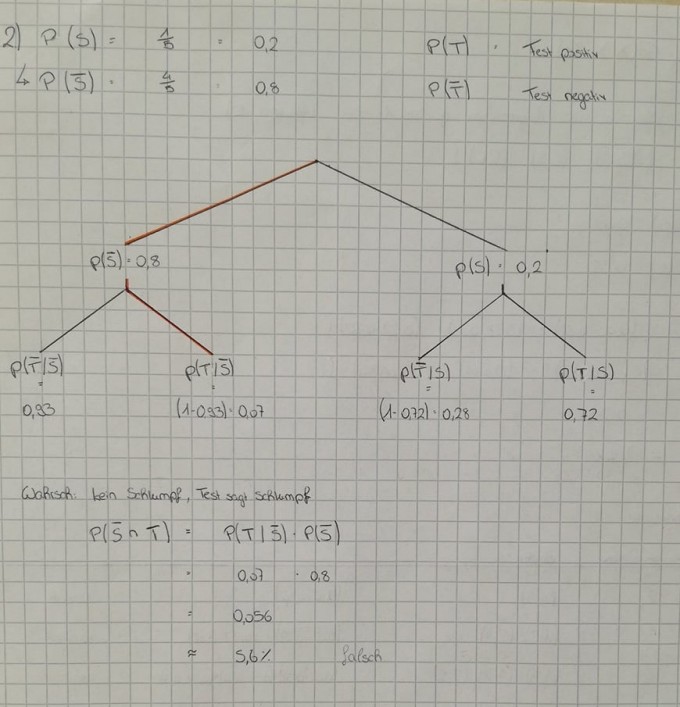 2) P(S) = 1/5 = 0,2 P(T) = Test positiv
↳ P(S̄) = 4/5 = 0,8 P(T̄) Test negativ
P(S̄) = 0,8 P(S) = 0,2
P(T̄|S̄) P(T|S̄) P(T̄|S) P(T|S)
= = = =
0,93 (1-0,93) = 0,07 (1-0,72) = 0,28 0,72
Wahrsch. kein Schlumpf, Test sagt Schlumpf
P(S̄ ∩ T) = P(T|S̄) · P(S̄)
= 0,07 · 0,8
= 0,056
≈ 5,6% falsch